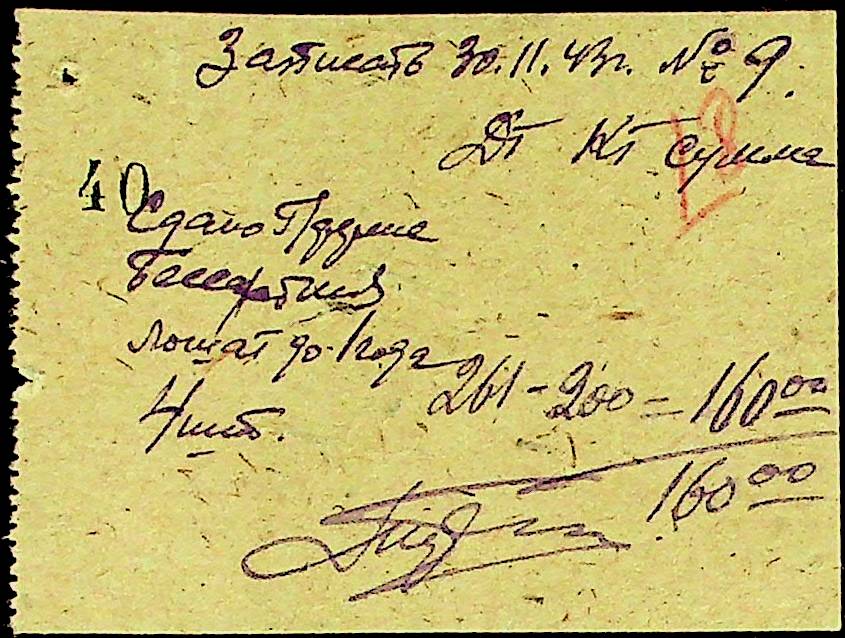 Записать 30.11.43г. № 9.
Дт Кт сумма
40
Сдано
лошат до 1 года
261 - 200 = 160 00
4 шт.
160 00